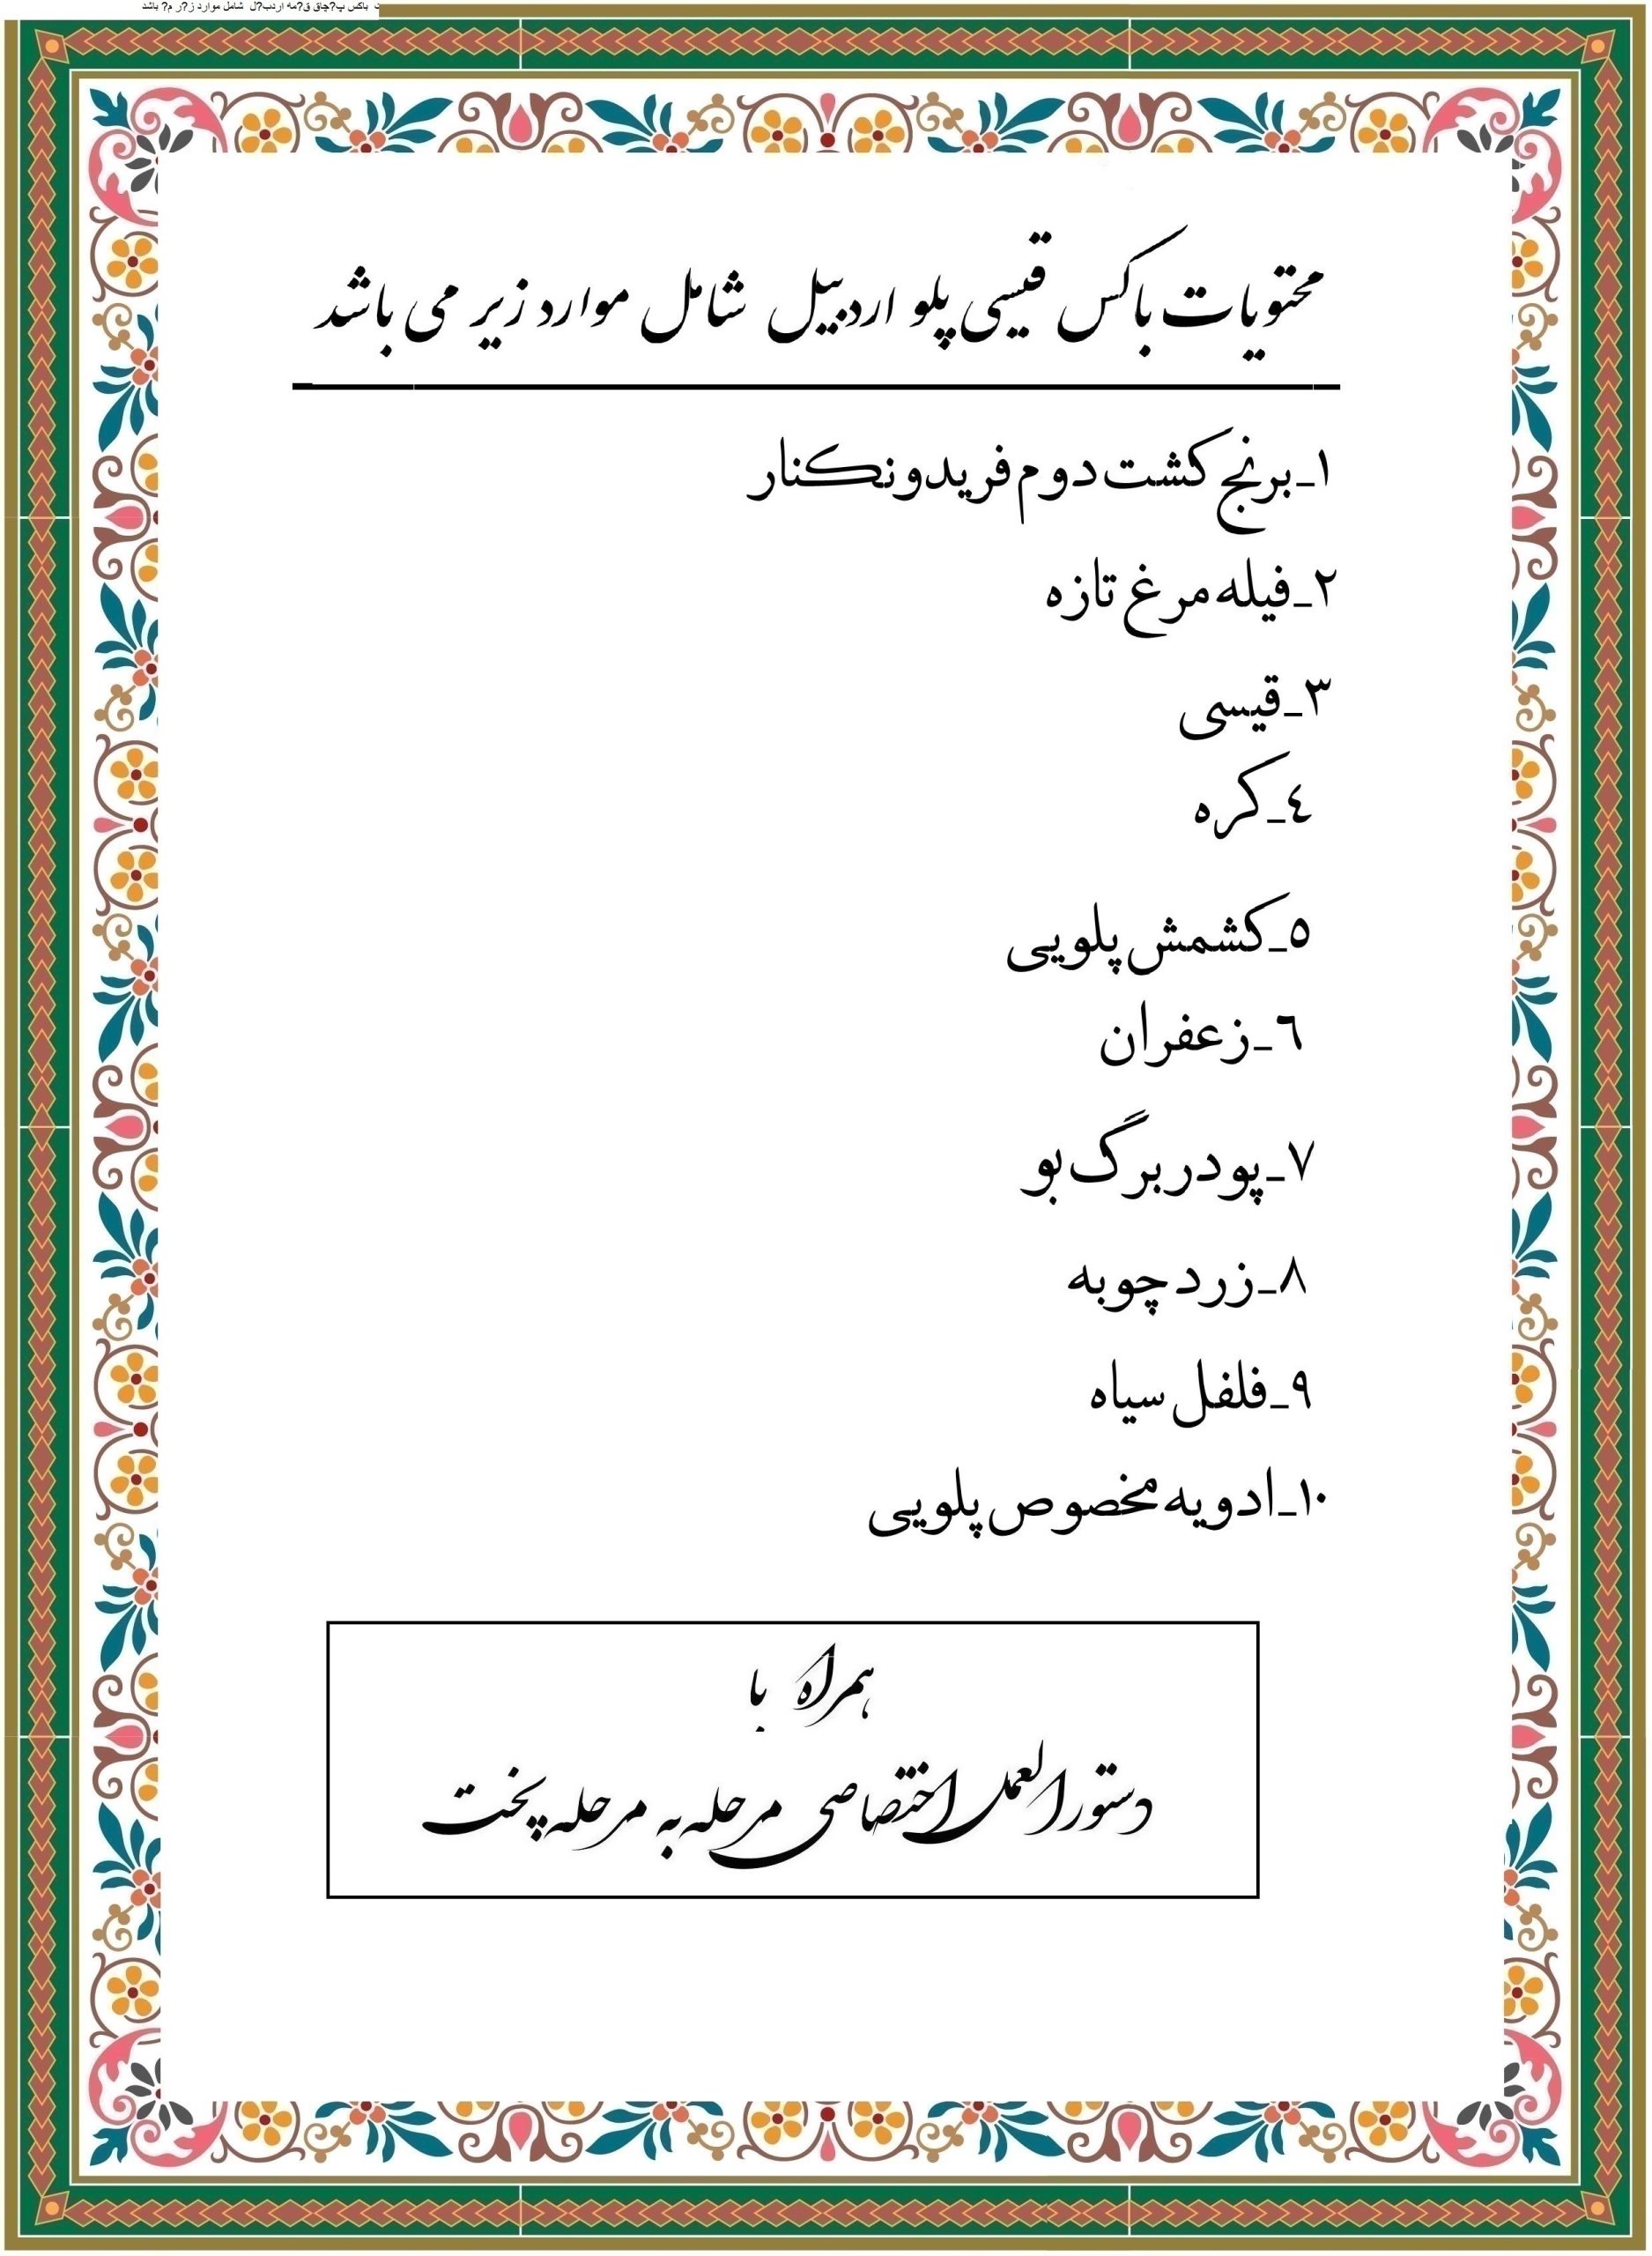 باکس پ?چاق ق?مه اردب?ل شامل موارد ز?ر م? باشد
محتویات باکس قیسی پلو اردبیل شامل موارد زیر می باشد
۱_برنج کشت دوم فریدونکنار
۲_فیله مرغ تازه
۳_قیسی
٤_کره
٥_کشمش پلویی
٦_زعفران
۷_پودر برگ بو
۸_زردچوبه
۹_فلفل سیاه
۱۰_ادویه مخصوص پلویی
همراه با
دستورالعمل اختصاصی مرحله به مرحله پخت